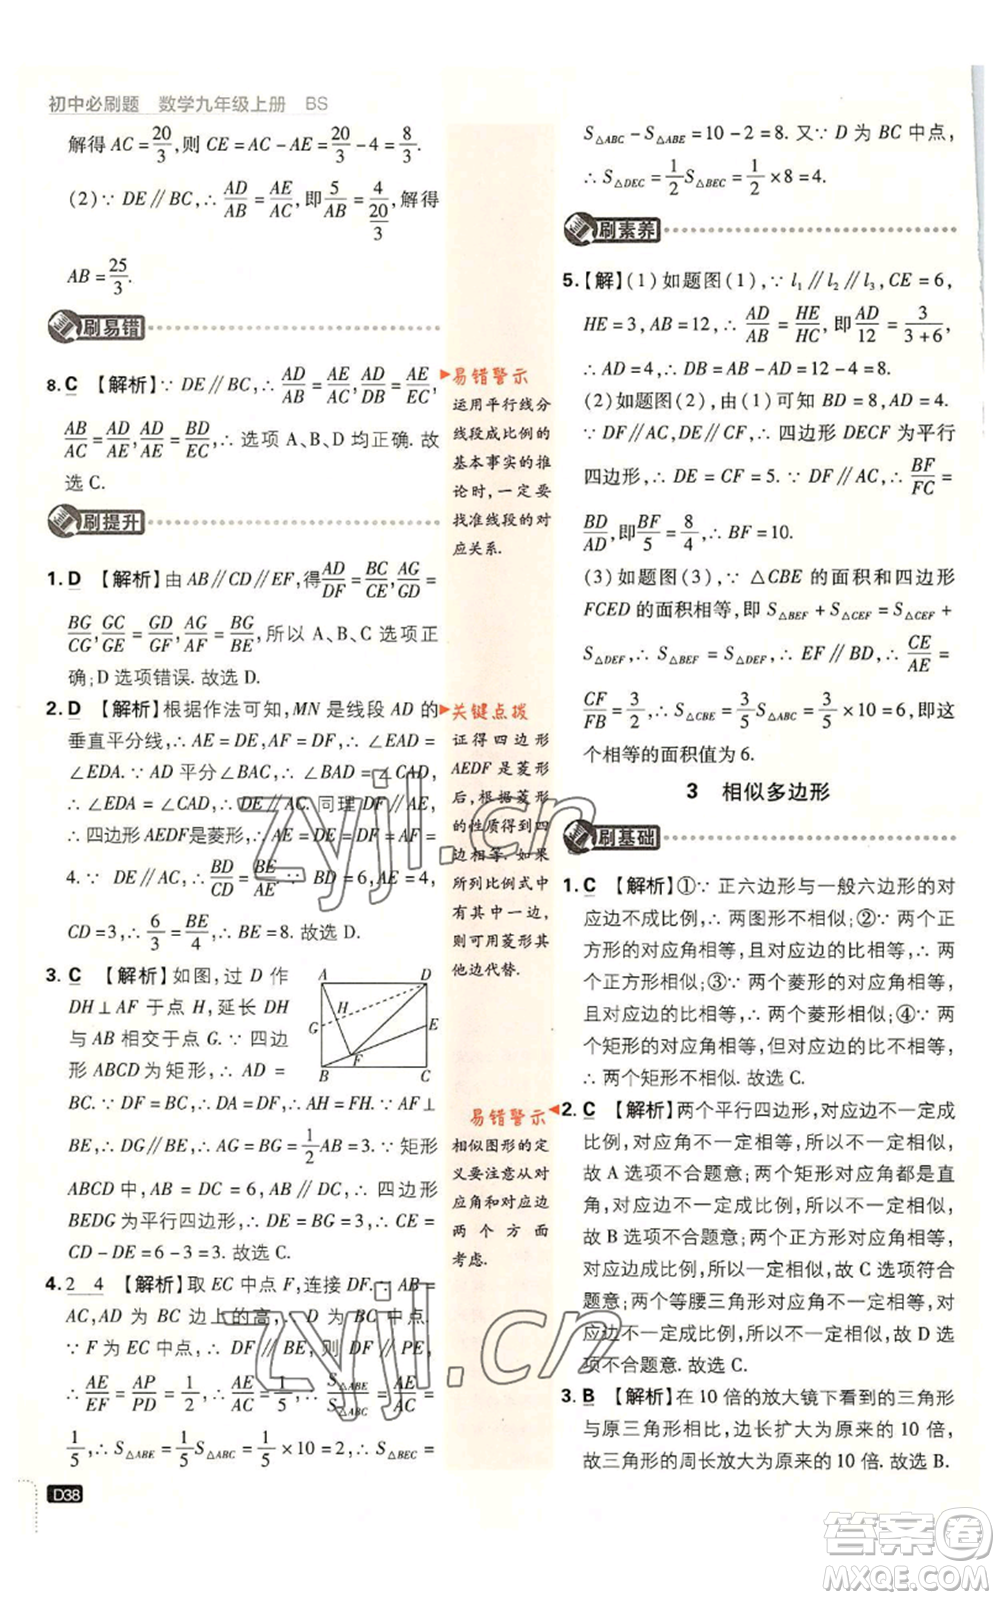 初中必刷题 数学九年级上册 BS
解得 AC = 20/3, 则 CE = AC − AE = 20/3 − 4 = 8/3.
(2) ∵ DE∥BC, ∴ AD/AB = AE/AC, 即 5/AB = 4/(20/3), 解得
AB = 25/3.
刷易错
8. C 【解析】∵ DE∥BC, ∴ AD/AB = AE/AC, AD/DB = AE/EC,
AB/AC = AE/AE, AD/AE = BD/EC, ∴ 选项 A、B、D 均正确. 故
选 C.
刷提升
1. D 【解析】由 AB∥CD∥EF, 得 AD/DF = BC/CE, AG/GD =
BG/CG, GC/GE = GD/GF, AG/GF = BG/BE, 所以 A、B、C 选项正
确; D 选项错误. 故选 D.
2. D 【解析】根据作法可知, MN 是线段 AD 的
垂直平分线, ∴ AE = DE, AF = DF, ∴ ∠EAD =
∠EDA. ∵ AD 平分∠BAC, ∴ ∠BAD = ∠CAD,
∴ ∠EDA = ∠CAD, ∴ DE∥AC. 同理 DF∥AE,
∴ 四边形 AEDF是菱形, ∴ AE = DE = DF = AF =
4. ∵ DE∥AC, ∴ BD/CD = BE/AE. ∵ BD = 6, AE = 4,
CD = 3, ∴ 6/3 = BE/4, ∴ BE = 8. 故选 D.
3. C 【解析】如图, 过 D 作
DH⊥AF 于点 H, 延长 DH
与 AB 相交于点 G. ∵ 四边
形 ABCD 为矩形, ∴ AD =
BC. ∵ BC = DF, ∴ DA = DF, ∴ AH = FH. ∵ AF⊥
BE, ∴ DG∥BE, ∴ AG = BG = 1/2 AB = 3. ∵ 矩形
ABCD 中, AB = DC = 6, AB∥DC, ∴ 四边形
BEDG 为平行四边形, ∴ DE = BG = 3, ∴ CE =
CD − DE = 6 − 3 = 3. 故选 C.
A D H G E F B C
4. 2 4 【解析】取 EC 中点 F, 连接 DF. ∵ AB =
AC, AD 为 BC 边上的高, ∴ D 为 BC 中点.
∵ F 为 EC 中点, ∴ DF∥BE, 则 DF∥PE,
∴ AE/EF = AP/PD = 1/2, ∴ AE/AC = 1/5, ∴ S△ABE/S△ABC = AE/AC =
1/5, ∴ S△ABE = 1/5 S△ABC = 1/5 × 10 = 2, ∴ S△BEC =
D38
易错警示
运用平行线分
线段成比例的
基本事实的推
论时, 一定要
找准线段的对
应关系.
关键点拨
证得四边形
AEDF 是菱形
后, 根据菱形
的性质得到四
边相等. 如果
所列比例式中
有其中一边,
则可用菱形其
他边代替.
易错警示
相似图形的定
义要注意从对
应角和对应边
两个方面
考虑.
S△ABC − S△ABE = 10 − 2 = 8. 又∵ D 为 BC 中点,
∴ S△DEC = 1/2 S△BEC = 1/2 × 8 = 4.
刷素养
5. 【解】(1) 如题图(1), ∵ l₁∥l₂∥l₃, CE = 6,
HE = 3, AB = 12, ∴ AD/AB = HE/HC, 即 AD/12 = 3/(3+6),
∴ AD = 4, ∴ BD = AB − AD = 12 − 4 = 8.
(2) 如题图(2), 由(1)可知 BD = 8, AD = 4.
∵ DF∥AC, DE∥CF, ∴ 四边形 DECF 为平行
四边形, ∴ DE = CF = 5. ∵ DF∥AC, ∴ BF/FC =
BD/AD, 即 BF/5 = 8/4, ∴ BF = 10.
(3) 如题图(3), ∵ △CBE 的面积和四边形
FCED 的面积相等, 即 S△BEF + S△CEF = S△CEF +
S△DEF, ∴ S△BEF = S△DEF, ∴ EF∥BD, ∴ CE/AE =
CF/FB = 3/2, ∴ S△CBE = 3/5 S△ABC = 3/5 × 10 = 6, 即这
个相等的面积值为 6.
3 相似多边形
刷基础
1. C 【解析】①∵ 正六边形与一般六边形的对
应边不成比例, ∴ 两图形不相似; ②∵ 两个正
方形的对应角相等, 且对应边的比相等, ∴ 两
个正方形相似; ③∵ 两个菱形的对应角不相等,
且对应边的比相等, ∴ 两个菱形不相似; ④∵
两个矩形的对应角相等, 但对应边的比不相等,
∴ 两个矩形不相似. 故选 C.
2. C 【解析】两个平行四边形, 对应边不一定成
比例, 对应角不一定相等, 所以不一定相似,
故 A 选项不合题意; 两个矩形对应角都是直
角, 对应边不一定成比例, 所以不一定相似,
故 B 选项不合题意; 两个正方形, 对应角相
等, 对应边成比例, 所以相似, 故 C 选项符合
题意; 两个等腰三角形对应角不一定相等, 对
应边不一定成比例, 所以不一定相似, 故 D 选
项不合题意. 故选 C.
3. B 【解析】在 10 倍的放大镜下看到的三角形
与原三角形相比, 边长扩大为原来的 10 倍,
故三角形的周长放大为原来的 10 倍. 故选 B.
zyjl.cn
zyjl.cn
答案圈
MXQE.COM